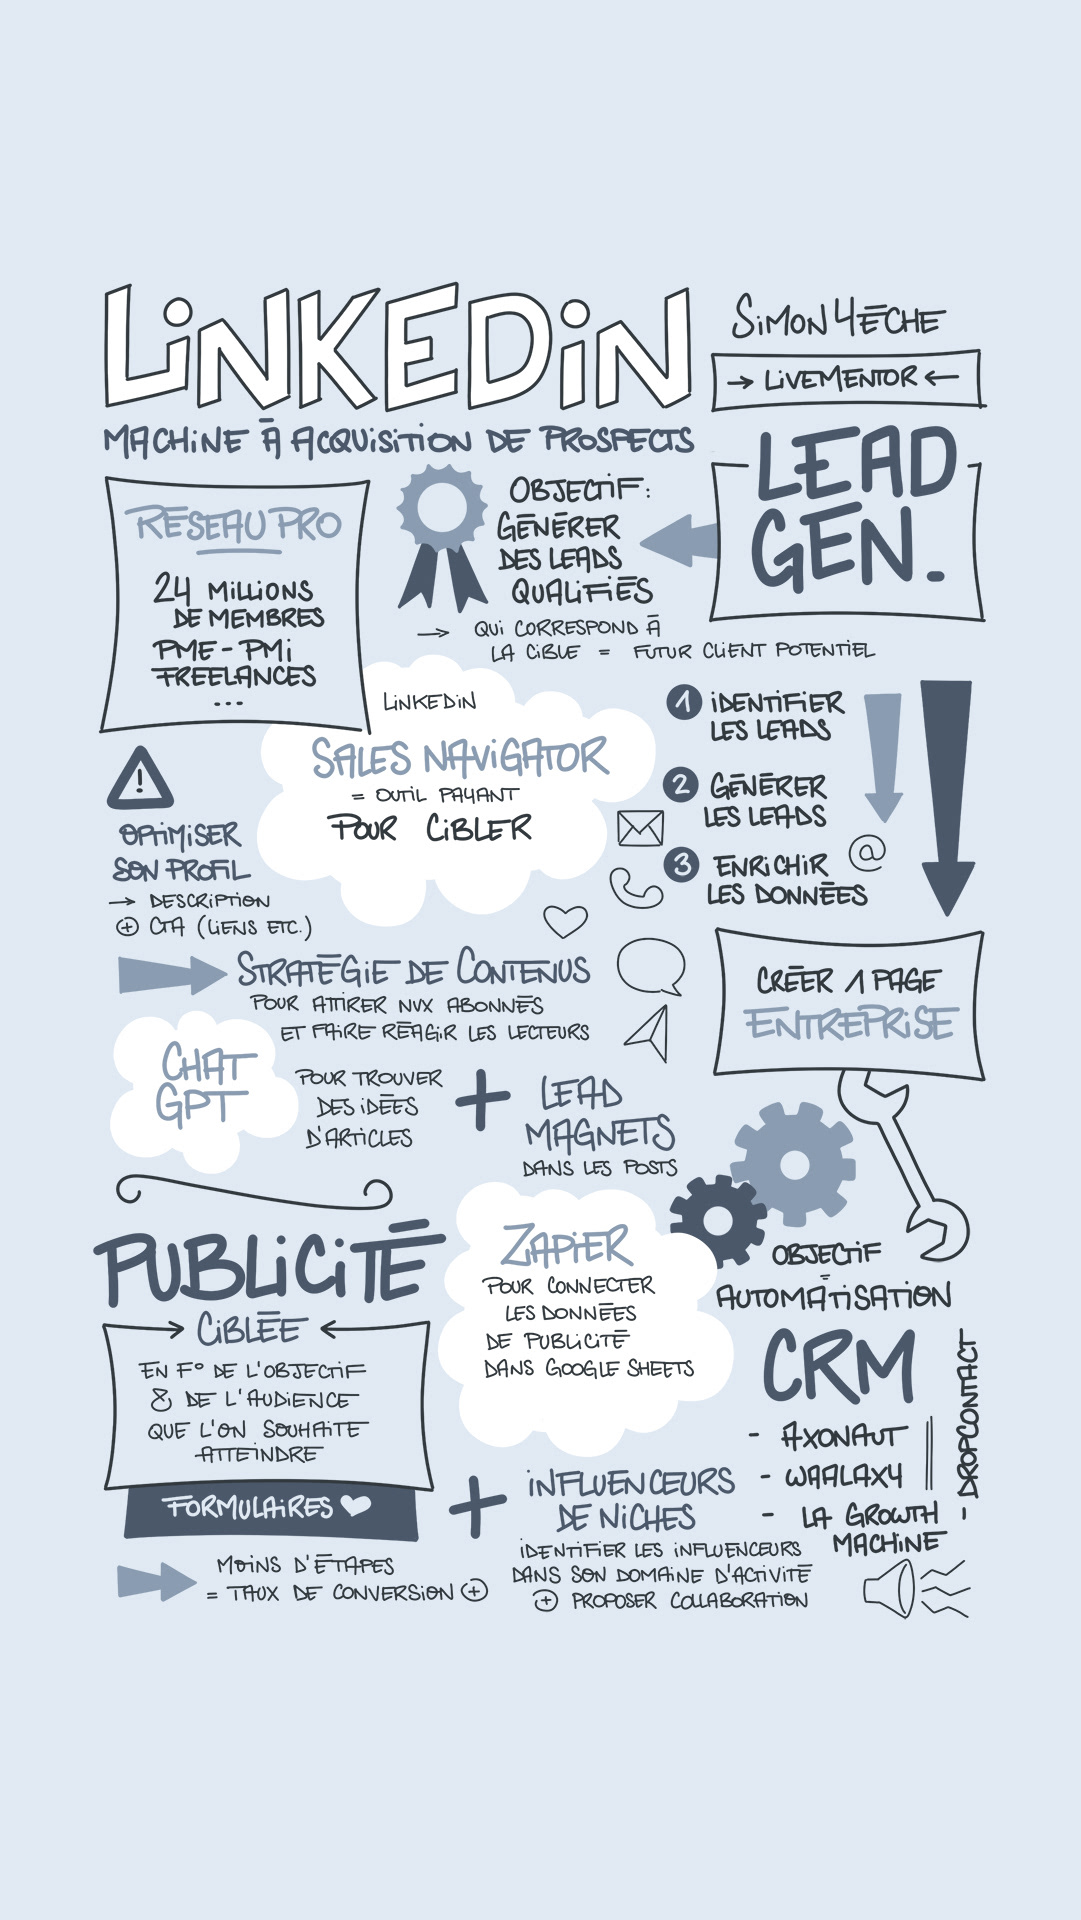 LiNKEDiN
SiMON 4ĒCHE
→ LiVEMENTOR ←
MACHiNE À ACQUiSiTiON DE PROSPECTS
LEAD
GEN.
OBJECTiF :
GÉNÉRER
DES LEADS
QUALiFiÉS
→ QUi CORRESPOND À
LA CiBLE = FUTUR CLiENT POTENTiEL
RÉSEAU PRO
24 MiLLiONS
DE MEMBRES
PME - PMi
FREELANCES
...
LiNKEDiN
SALES NAViGATOR
= OUTiL PAYANT
POUR CiBLER
1 iDENTiFiER
LES LEADS
2 GÉNÉRER
LES LEADS
3 ENRiCHiR
LES DONNÉES
@
!
OPTiMiSER
SON PROFiL
→ DESCRiPTiON
⊕ CTA (LiENS ETC.)
STRATÉGiE DE CONTENUS
POUR ATTiRER NVX ABONNÉS
ET FAiRE RÉAGiR LES LECTEURS
CRÉER 1 PAGE
ENTREPRiSE
CHAT
GPT
POUR TROUVER
DES iDÉES
D'ARTiCLES
+ LEAD
MAGNETS
DANS LES POSTS
PUBLiCiTÉ
→ CiBLÉE ←
EN F° DE L'OBJECTiF
& DE L'AUDiENCE
QUE L'ON SOUHAiTE
ATTEiNDRE
FORMULAiRES
MOiNS D'ÉTAPES
= TAUX DE CONVERSiON ⊕
ZAPiER
POUR CONNECTER
LES DONNÉES
DE PUBLiCiTÉ
DANS GOOGLE SHEETS
OBJECTiF
AUTOMATiSATiON
CRM
- AXONAUT
- WAALAXY
- LA GROWTH
MACHiNE
- DROPCONTACT
+ iNFLUENCEURS
DE NiCHES
iDENTiFiER LES iNFLUENCEURS
DANS SON DOMAiNE D'ACTiViTÉ
⊕ PROPOSER COLLABORATiON